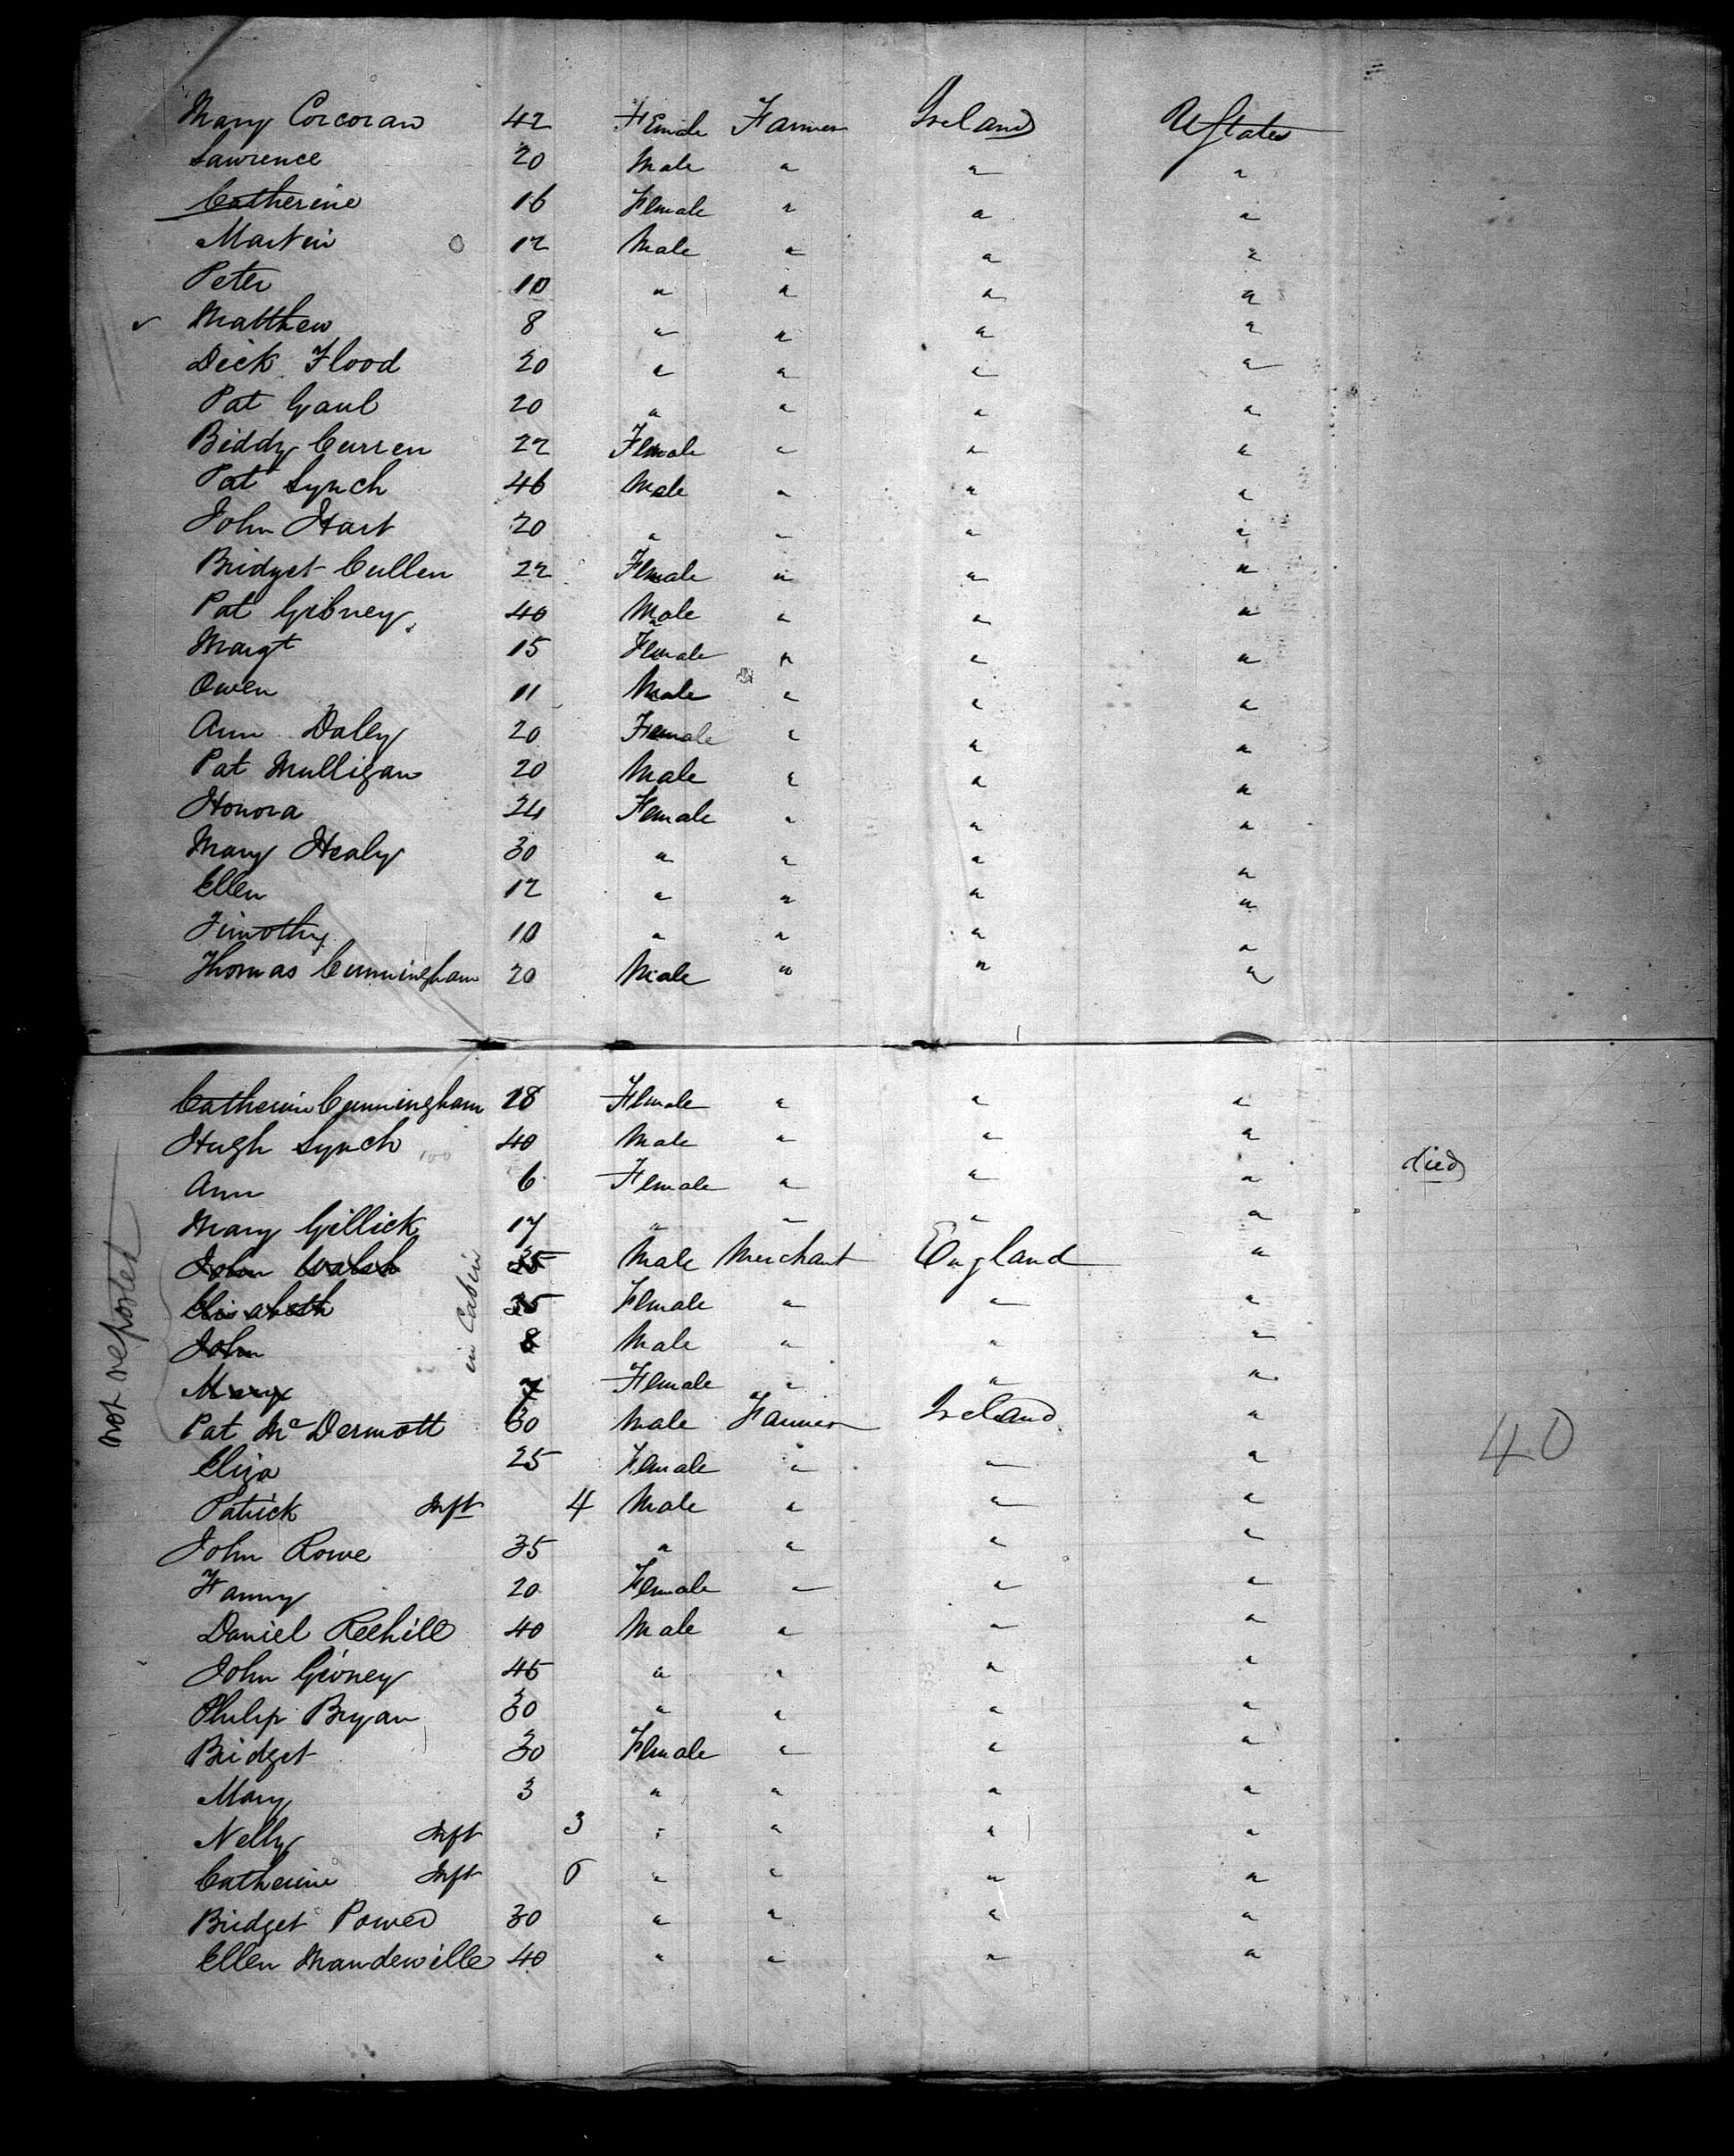 Mary Corcoran 42 Female Farmer Ireland UStates
Lawrence 20 Male " " "
Catherine 16 Female " " "
Martin 12 Male " " "
Peter 10 " " " "
Matthew 8 " " " "
Dick Flood 20 " " " "
Pat Gaul 20 " " " "
Biddy Curren 22 Female " " "
Pat Lynch 46 Male " " "
John Hart 20 " " " "
Bridget Cullen 22 Female " " "
Pat Gibney 40 Male " " "
Margt 15 Female " " "
Owen 11 Male " " "
Ann Daley 20 Female " " "
Pat Mulligan 20 Male " " "
Honora 24 Female " " "
Mary Healy 30 " " " "
Ellen 12 " " " "
Timothy 10 " " " "
Thomas Cunningham 20 Male " " "
Catherine Cunningham 18 Female " " "
Hugh Lynch 40 Male " " "
Ann 6 Female " " " died
Mary Gillick 17 " " " "
not reported
in Cabin
John Walsh 35 Male Merchant England "
Elisabeth 35 Female " " "
John 8 Male " " "
Mary 7 Female " " "
Pat McDermott 30 Male Farmer Ireland "
40
Eliza 25 Female " " "
Patrick Inft 4 Male " " "
John Rowe 35 " " " "
Fanny 20 Female " " "
Daniel Reehill 40 Male " " "
John Givney 45 " " " "
Philip Bryan 30 " " " "
Bridget 30 Female " " "
Mary 3 " " " "
Nelly Inft 3 " " " "
Catherine Inft " " " "
Bridget Power 30 " " " "
Ellen Mandeville 40 " " " "